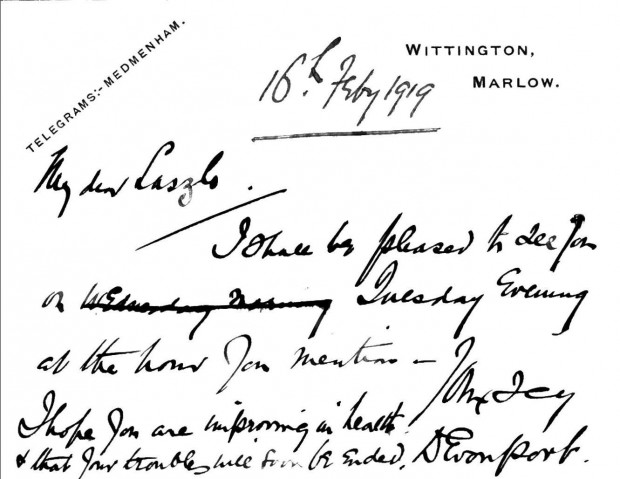 TELEGRAMS:- MEDMENHAM.
WITTINGTON,
MARLOW.
16th Feby 1919
My dear Laszlo.
I shall be pleased to see you
on Wednesday Morning Tuesday Evening
at the hour you mention –
I hope you are improving in health
& that your troubles will soon be ended.
Devonport.